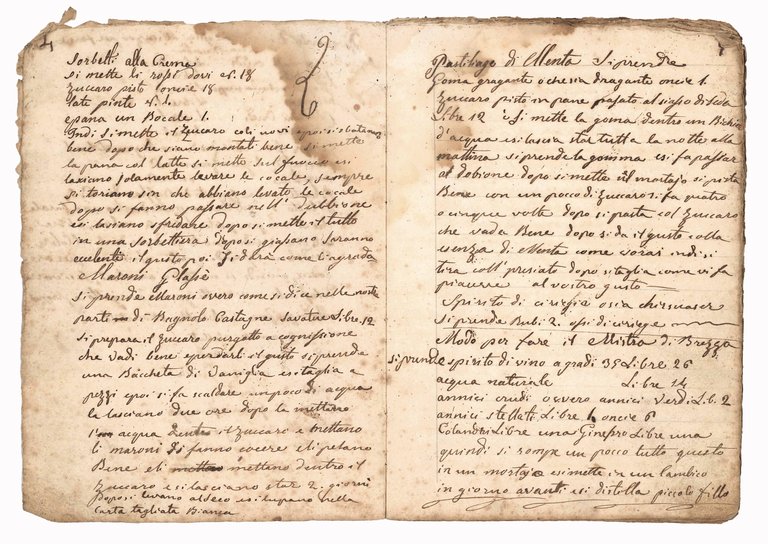 4
Sorbetti alla Crema
si mette li rossi dovi N. 18
zuccaro pisto loncie 18
late pinte N. 1.
e pana un Bocale 1.
Indi si mette il zuccaro coli vovi e poi si sbatano
bene dopo che siano montati bene si mette
la pana col latte si mette sul fuoco esi
lasciano solamente levare le cocale, sempre
si toriano sin che abbiano levato le cocale
dopo si fanno passare nell' dubbione
esi lasiano sfredare dopo si mette il tutto
in una sorbettiera dopo si giassano saranno
ecelente il gusto poi si dara come ti agrada
Maroni Glassè
si prende Maroni overo come si dice nelle nostre
parti di Bagnolo Castagne Savature Libre 12
si prepara il zuccaro purgatto a cognissione
che vadi bene e perdarti il gusto si prende
una Bacheta di Vaniglia esi taglia a
pezzi e poi si fa scaldare un poco di acqua
la lasciano due ore dopo la mettano
acqua dentro il zuccaro e mettano
li maroni si fanno cocere eli pelano
Bene eli mettano dentro il
zuccaro esi lasciano star 2. giorni
dopo si levano al seco esi lupano nella
carta tagliata Bianca
Pastiliage di Menta Si prende
Goma gragante o che sia dragante oncie 1.
Zuccaro pisto in pane passato al siasso di Seda
Libre 12 Si mette la goma dentro un Bichier
d'acqua esi lascia star tutta la notte alla
mattina si prende la gomma esi fa passar
al dobione dopo si mette il mortajo si pista
Bene con un pocco di zuccaro si fa quatro
o cinque volte dopo si pasta col zuccaro
che vada Bene dopo si da il gusto colla
esenza di Menta come vorai indi si
tira coll' presiato dopo si taglia come vi fa
piacere al vostro gusto
Spirito di ciregia osia chersvaser
si prende Rubi 2. ossi di ciriege
Modo per fare il Mistra di Brezza
si prende spirito di vino a gradi 35 Libre 26
acqua naturale Libre 14
annici crudi overo annici verdi Lib. 2
annici stellati Libre 1 oncie 6
Colandri Libre una Ginepro Libre una
quindi si rompe un pocco tutto questo
in un mortajo esi mette in un lambico
in giorno avanti esi distolla piccolo fillo